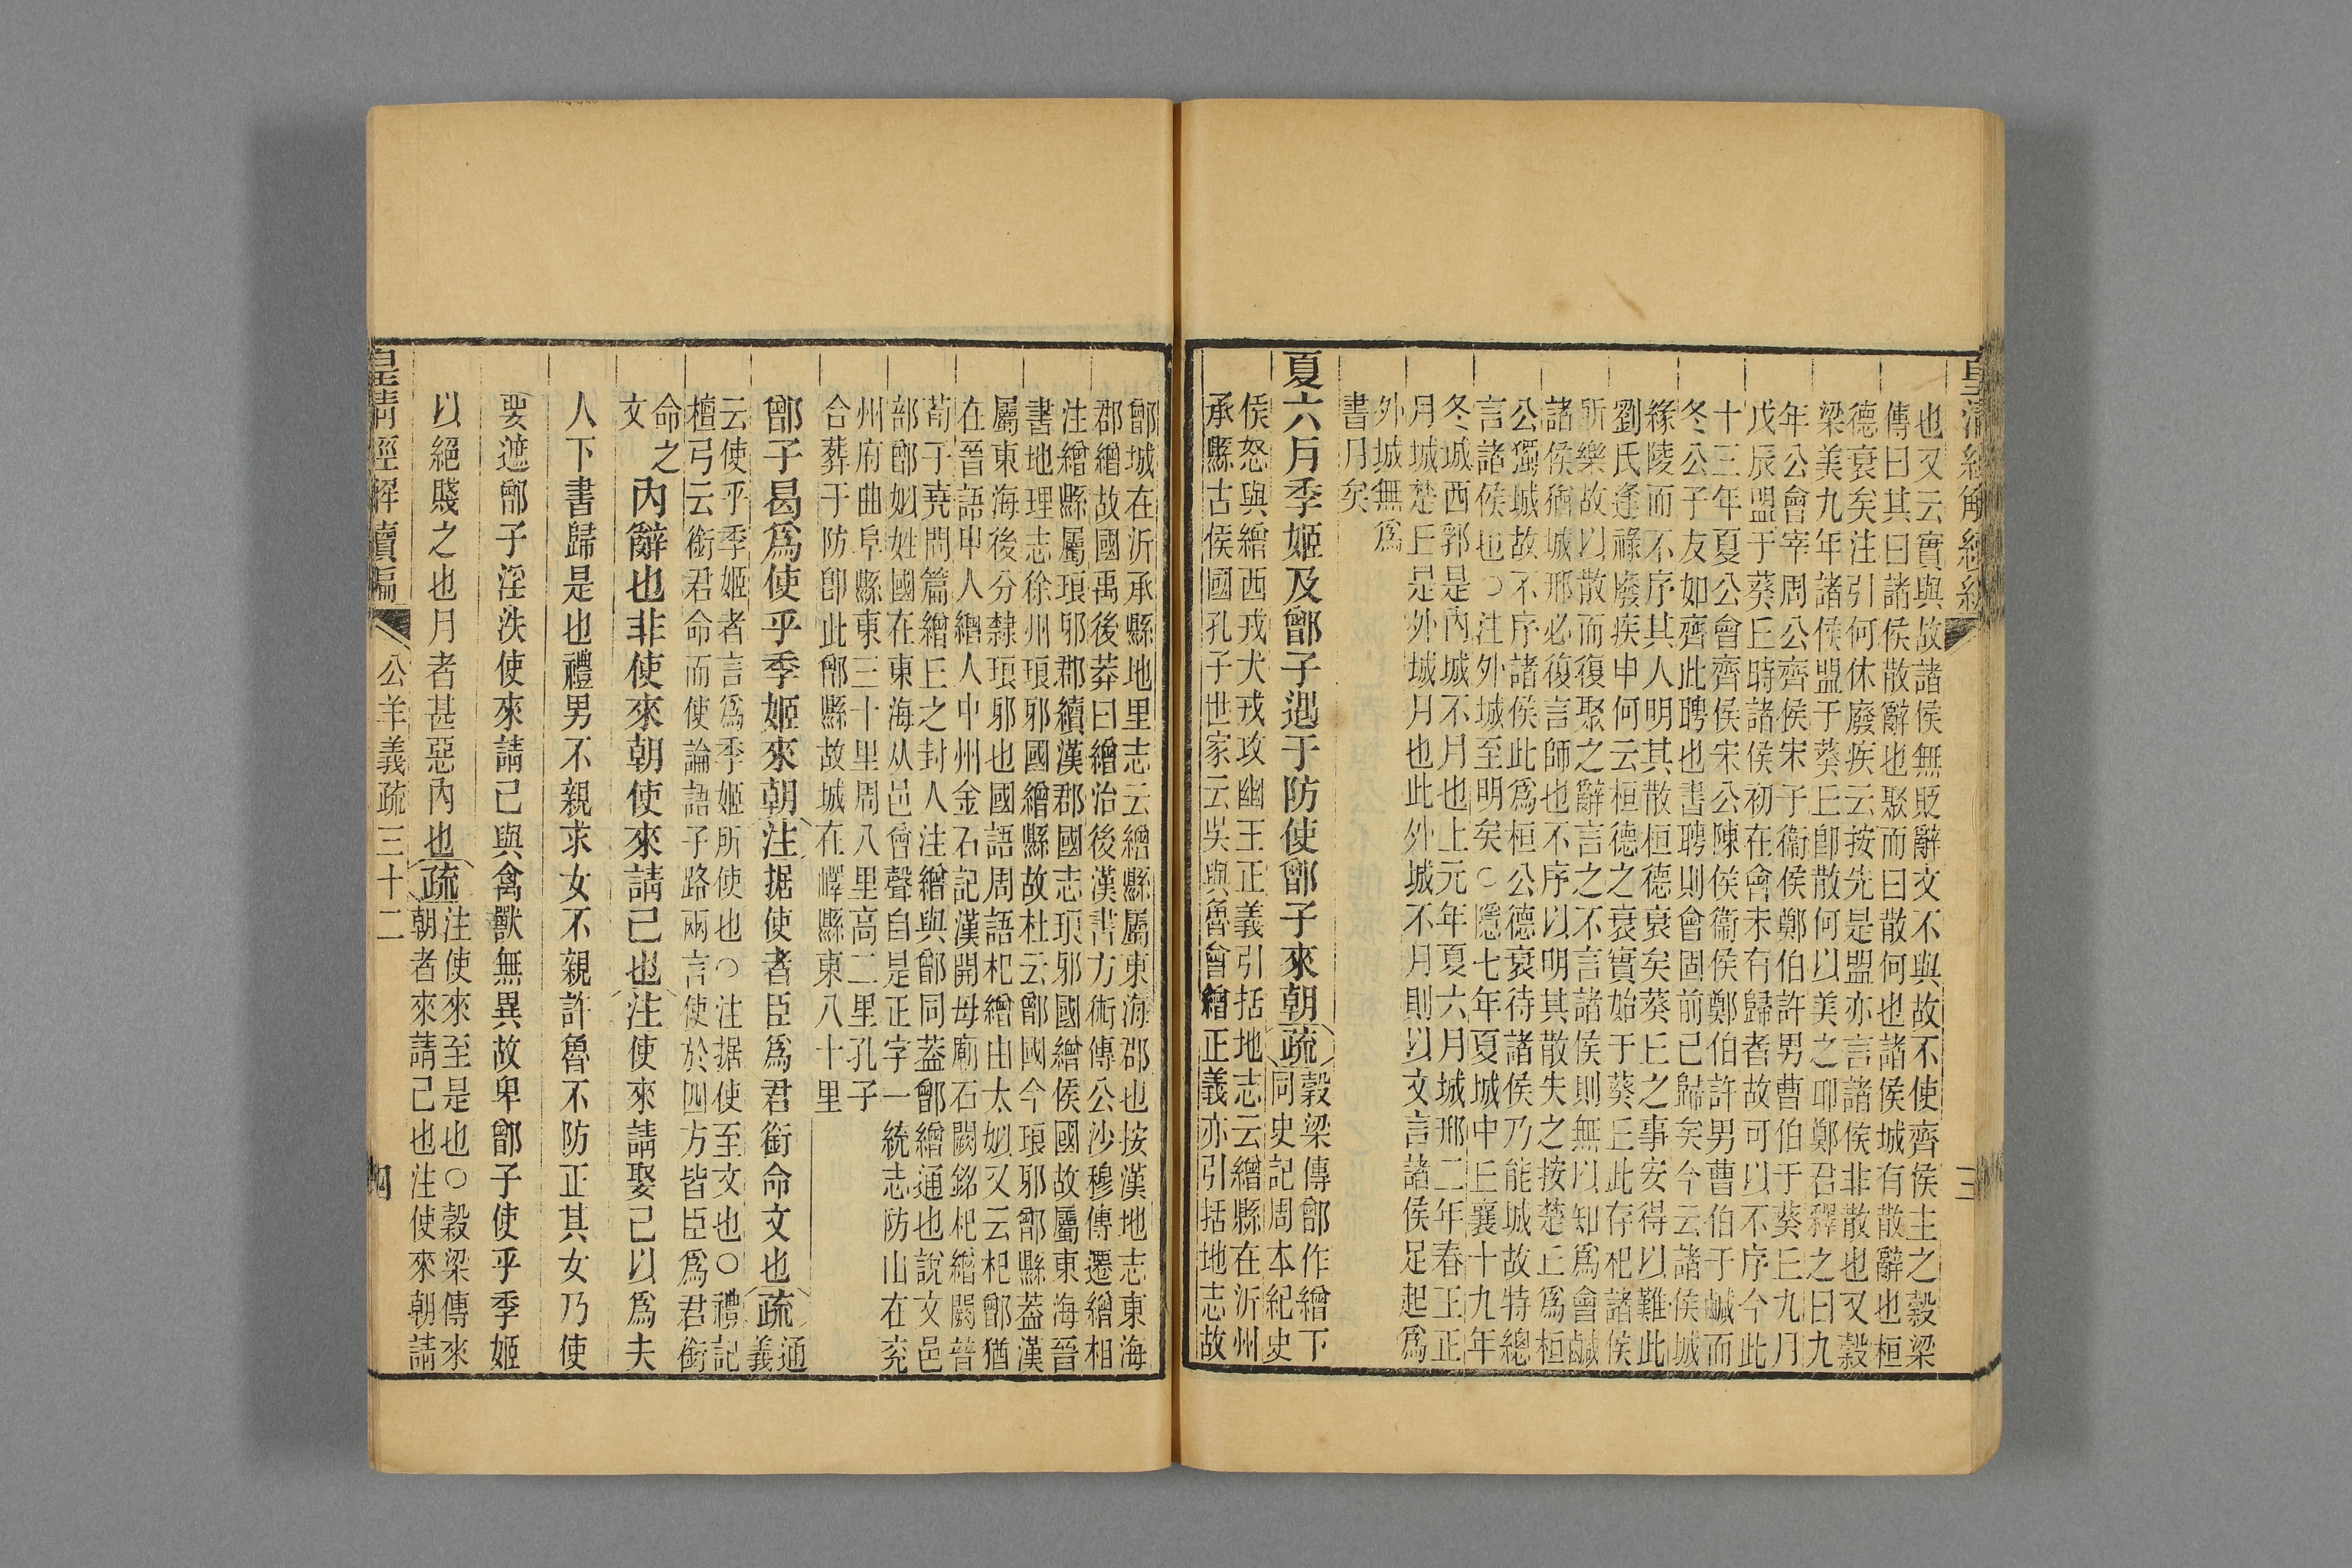 皇清經解續編
三
也又云實與故諸侯無貶辭文不與故不使齊侯主之穀梁
傳曰其曰諸侯散辭也聚而曰散何也諸侯城有散辭也桓
德衰矣注引何休廢疾云按先是盟亦言諸侯非散也又穀
梁美九年諸侯盟于葵丘即散何以美之邪鄭君釋之曰九
年公會宰周公齊侯宋子衞侯鄭伯許男曹伯于葵丘九月
戊辰盟于葵丘時諸侯初在會未有歸者故可以不序今此
十三年夏公會齊侯宋公陳侯衞侯鄭伯許男曹伯于鹹而
冬公子友如齊此聘也書聘則會固前已歸矣今云諸侯城
緣陵而不序其人明其散桓德衰矣葵丘之事安得以難此
劉氏逢祿廢疾申何云桓德之衰實始于葵丘此存杞諸侯
所樂故以散而復聚之辭言之不言諸侯則無以知爲會鹹
諸侯猶城邢必復言師也不序以明其散失之按楚丘爲桓
公獨城故不序諸侯此爲桓公德衰待諸侯乃能城故特總
言諸侯也○注外城至明矣○隱七年夏城中丘襄十九年
冬城西郛是內城不月也上元年夏六月城邢二年春王正
月城楚丘是外城月也此外城不月則以文言諸侯足起爲
外城無爲
書月矣
夏六月季姬及鄫子遇于防使鄫子來朝疏穀梁傳鄫作繒下
同史記周本紀史
侯怒與繒西戎犬戎攻幽王正義引括地志云繒縣在沂州
承縣古侯國孔子世家云吳與魯會繒正義亦引括地志故
鄫城在沂承縣地里志云繒縣屬東海郡也按漢地志東海
郡繒故國禹後莽曰繒治後漢書方術傳公沙穆傳遷繒相
注繒縣屬琅邪郡續漢郡國志琅邪國繒侯國故屬東海晉
書地理志徐州琅邪國繒縣故杜云鄫國今琅邪鄫縣蓋漢
屬東海後分隸琅邪也國語周語杞繒由太姒又云杞鄫猶
在晉語申人繒人中州金石記漢開母廟石闕銘杞繒闕晉
荀子堯問篇繒丘之封人注繒與鄫同蓋鄫繒通也說文邑
部鄫姒姓國在東海从邑曾聲自是正字一統志防山在兖
州府曲阜縣東三十里周八里高二里孔子
合葬于防卽此鄫縣故城在嶧縣東八十里
鄫子曷爲使乎季姬來朝注据使者臣爲君銜命文也疏通
義
云使乎季姬者言爲季姬所使也○注据使至文也○禮記
檀弓云銜君命而使論語子路兩言使於四方皆臣爲君銜
命之
文
內辭也非使來朝使來請己也注使來請娶己以爲夫
人下書歸是也禮男不親求女不親許魯不防正其女乃使
要遮鄫子淫泆使來請己與禽獸無異故卑鄫子使乎季姬
以絕賤之也月者甚惡內也疏注使來至是也○穀梁傳來
朝者來請己也注使來朝請
皇清經解續編
公羊義疏三十二
四